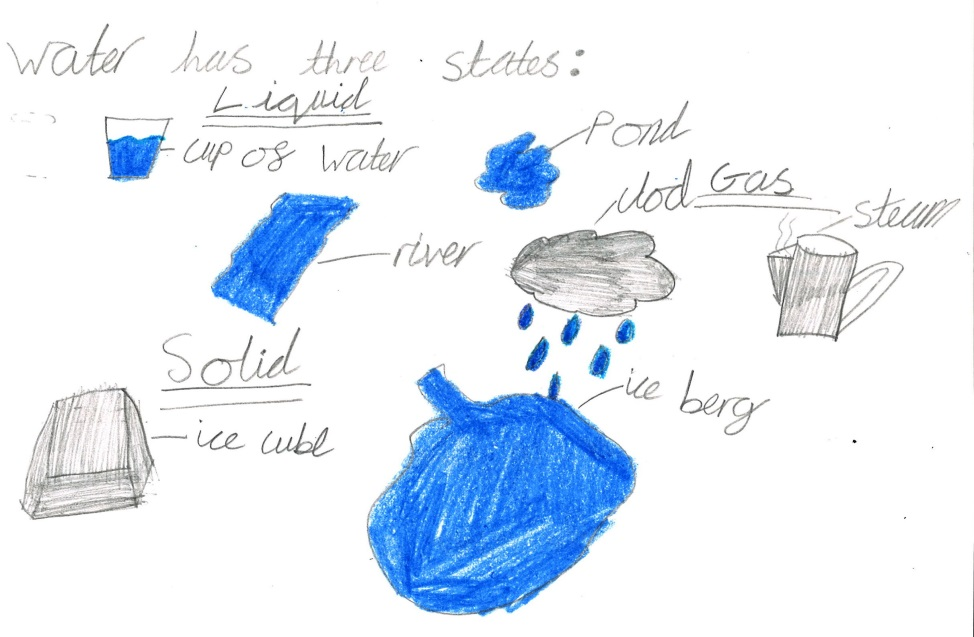 Water has three states:
Liquid
cup of water
Pond
clod
Gas
steam
river
Solid
ice berg
ice cube